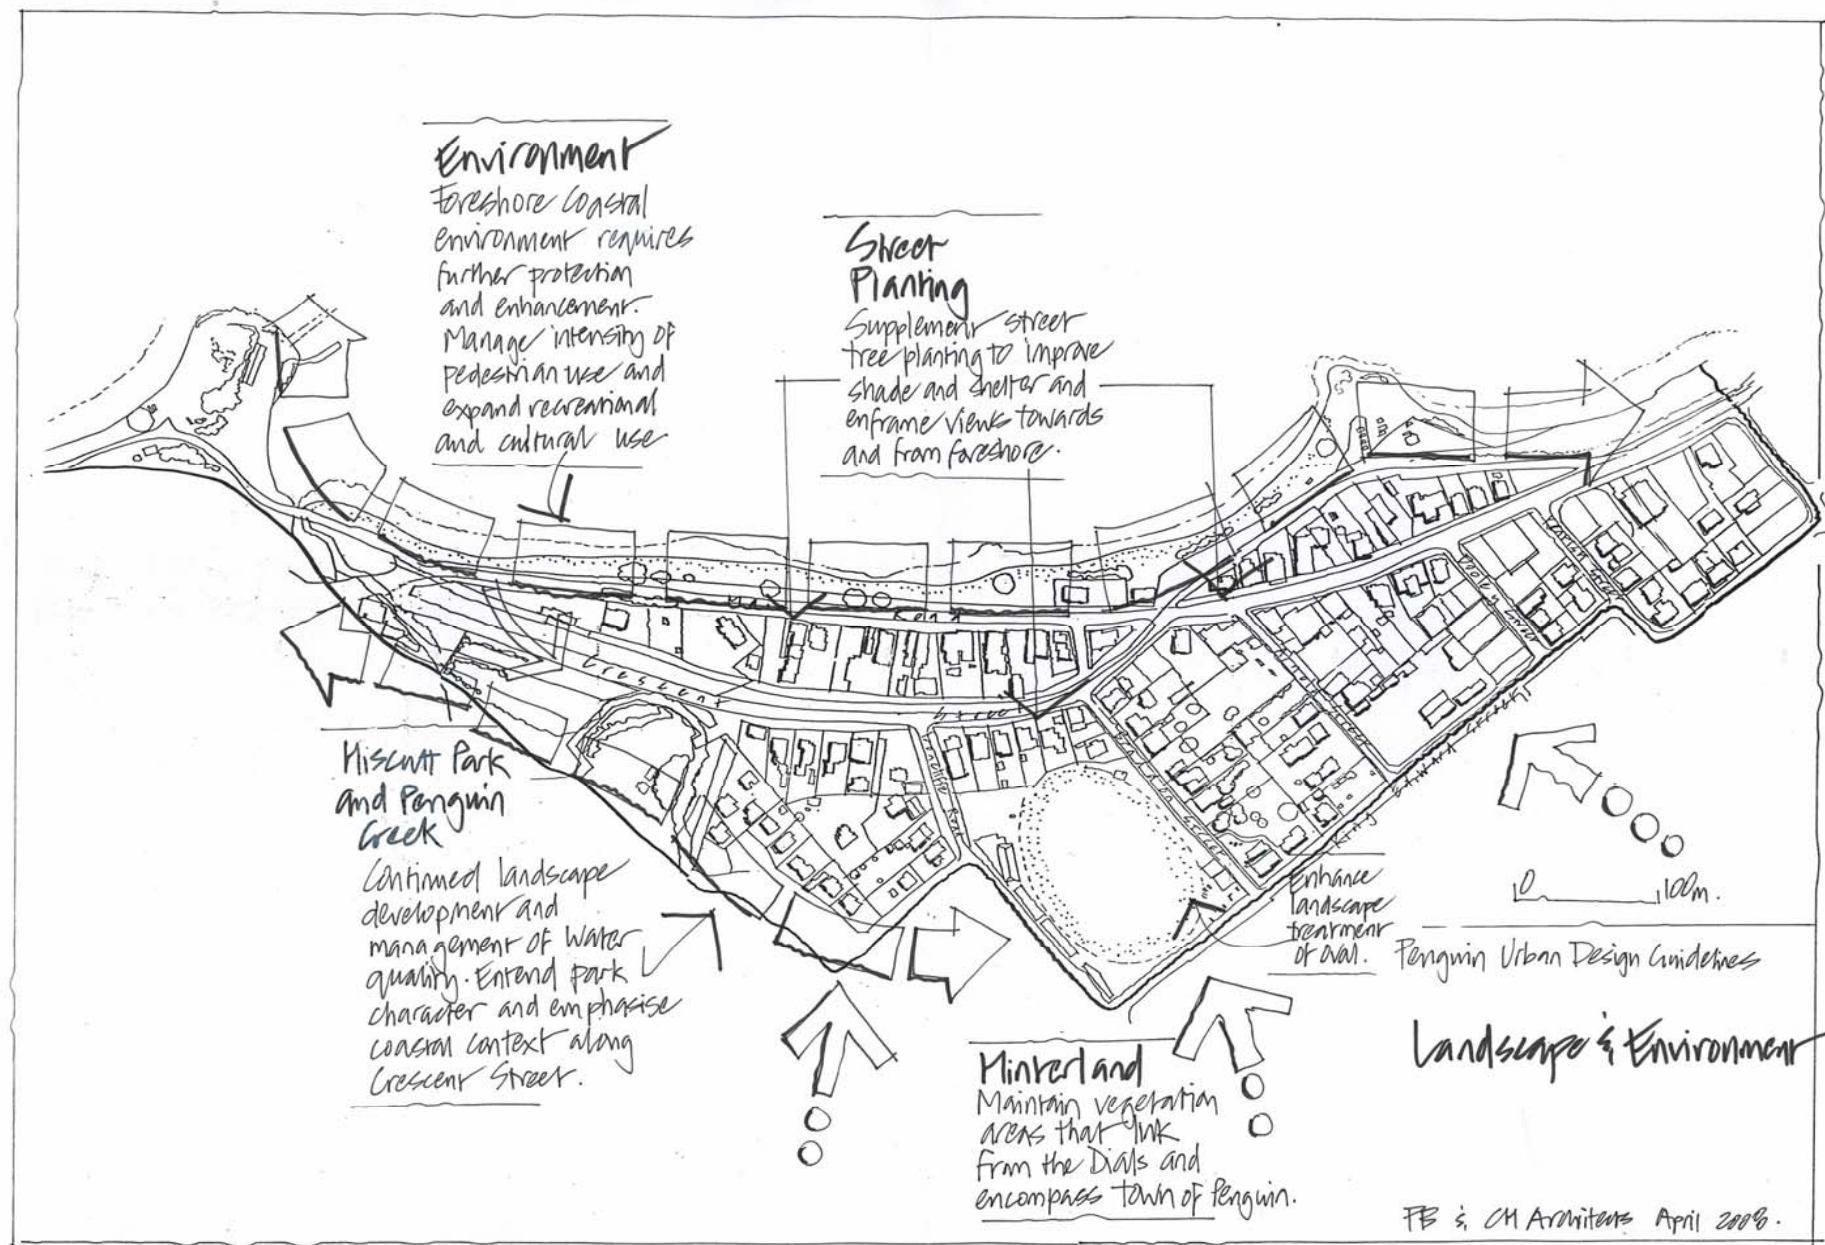 Environment
Foreshore Coastal
environment requires
further protection
and enhancement.
Manage intensity of
pedestrian use and
expand recreational
and cultural use
Street
Planting
Supplement street
tree planting to improve
shade and shelter and
enframe views towards
and from foreshore.
Crescent
Street
Hiscutt Park
and Penguin
Creek
Continued landscape
development and
management of water
quality. Entend park
character and emphasise
coastal context along
Crescent Street.
Enhance
landscape
treatment
of oval.
Hinterland
Maintain vegetation
areas that link
from the Dials and
encompass town of Penguin.
0 100m.
Penguin Urban Design Guidelines
Landscape & Environment
FB & CM Architects April 2008.